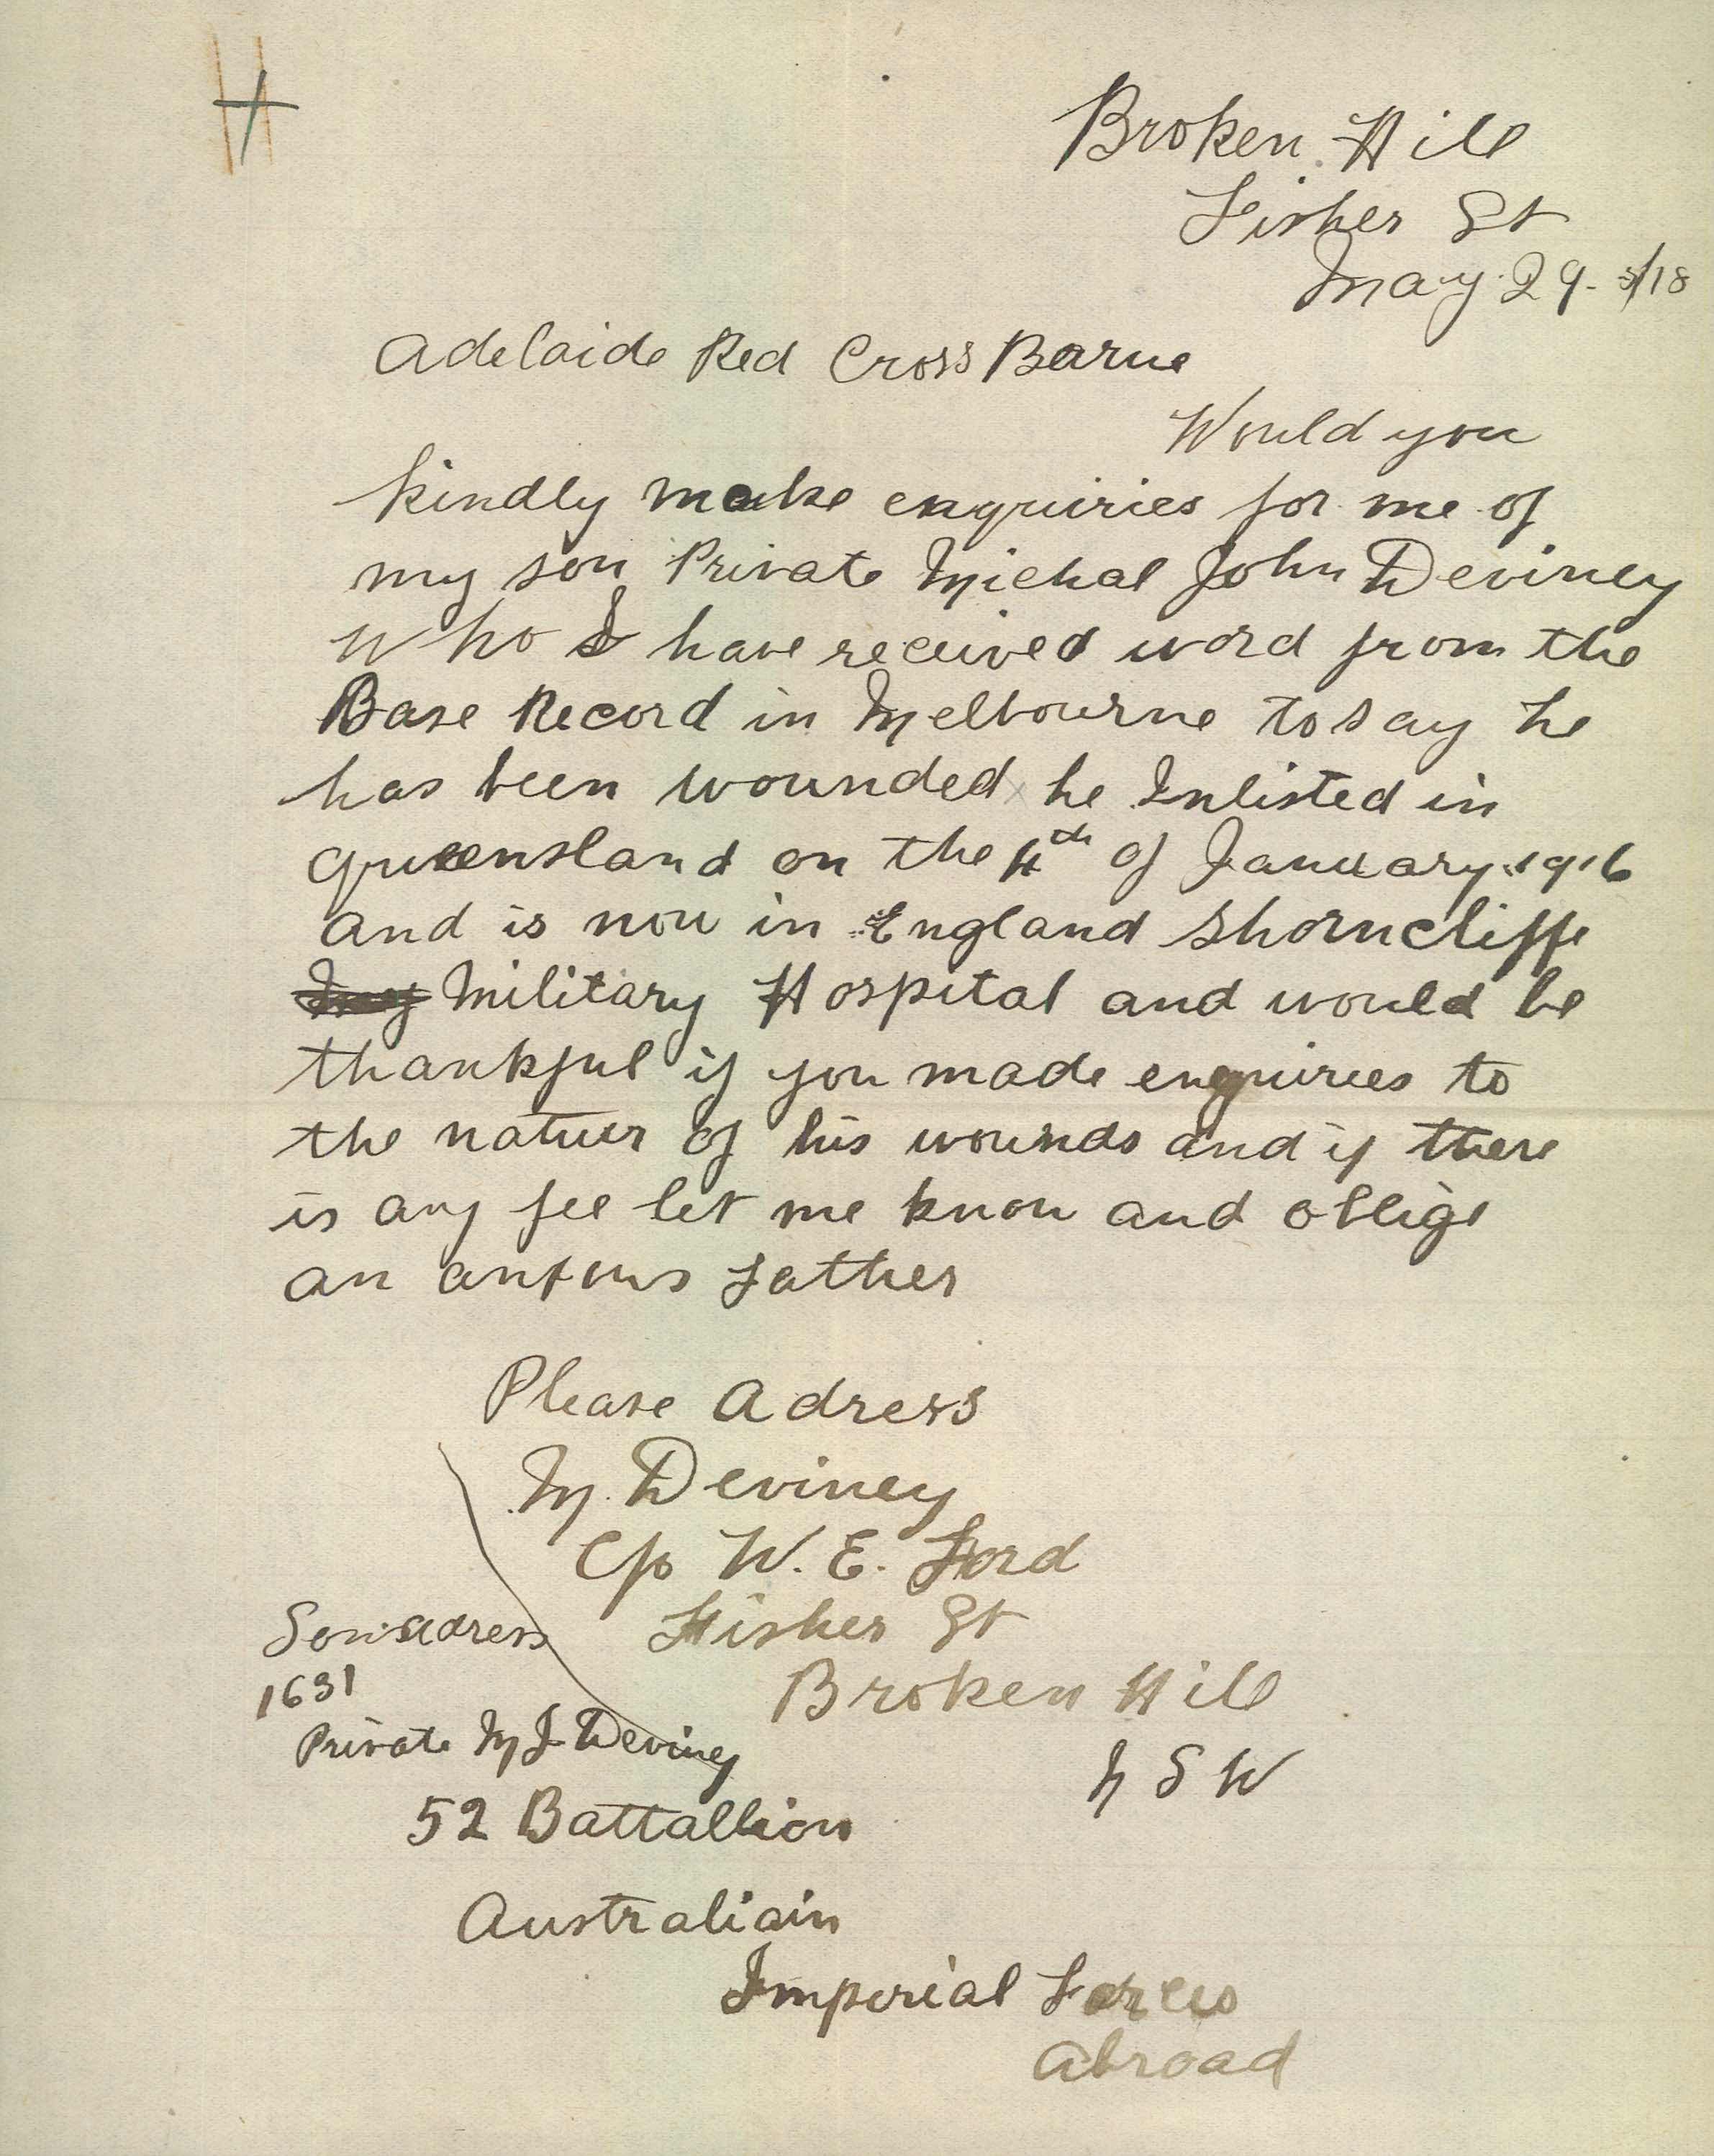 Broken Hill
Fisher St
May 29 - 5/18
Adelaide Red Cross Barue
Would you
kindly make enquiries for me of
my son Private Michal John Deviney
who I have received word from the
Base Record in Melbourne to say he
has been wounded he Inlisted in
Queensland on the 4th of January 1916
and is now in England Shorncliffe
Military Hospital and would be
thankful if you made enquiries to
the natuer of his wounds and if there
is any fee let me know and oblige
an anxous Father
Please Adress
M. Deviney
C/o W. E. Ford
Fisher St
Broken Hill
N S W
Sons adress
1631
Private M J Deviney
52 Battallion
Australiain
Imperial Forces
Abroad